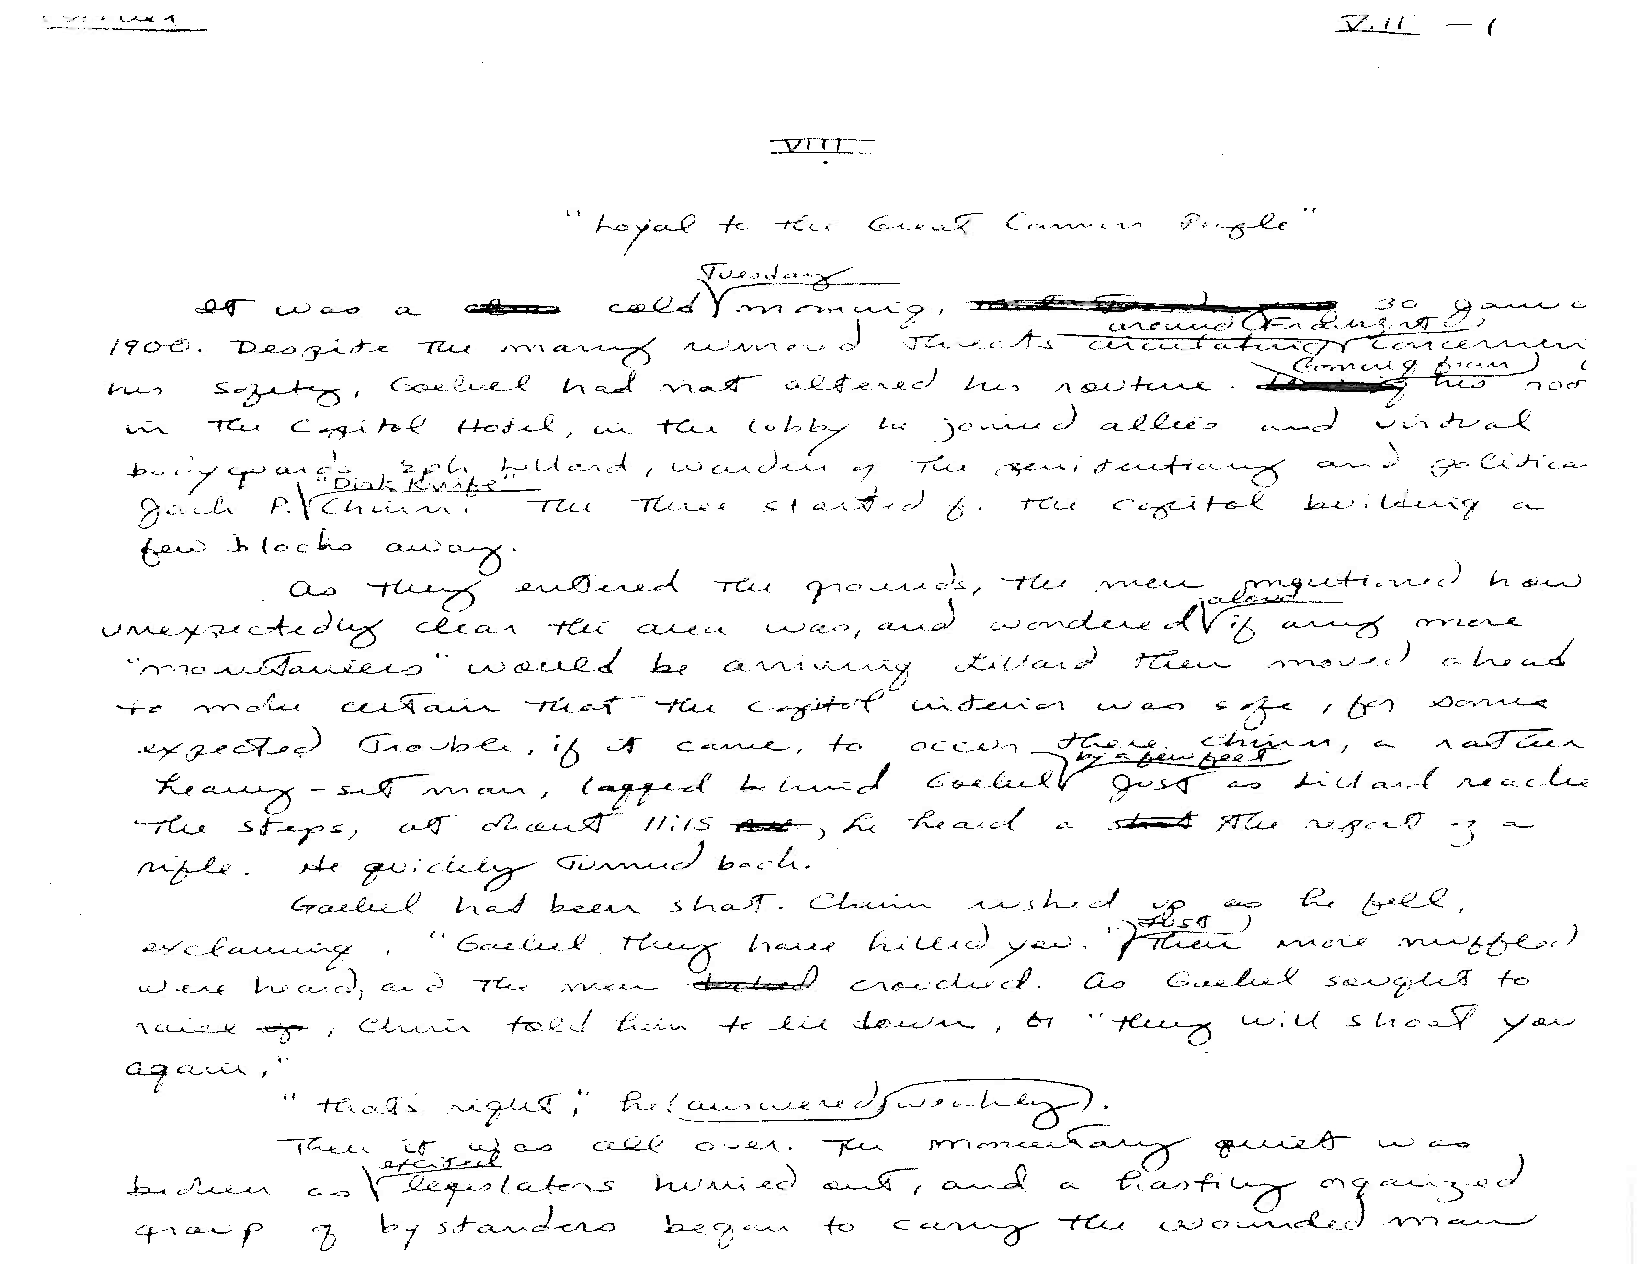 VIII — 1
VIII
"Loyal to the Great Common People"
Tuesday
It was a cold morning, 30 Janua
around Frankfort
1900. Despite the many rumored threats circulating concernin
coming from
his safety, Goebel had not altered his routine. his roo
in the Capitol Hotel, in the lobby he joined allies and virtual
bodyguards, Eph Lillard, warden of the penitentiary and politicia
"Dirk Knife"
Jack P. Chinn. The three started f. the capitol building a
few blocks away.
As they entered the grounds, the men mentioned how
aloud
unexpectedly clear the area was, and wondered if any more
"mountaineers" would be arriving Lillard then moved ahead
to make certain that the capitol interior was safe, for some
expected trouble, if it came, to occur there. Chinn, a rather
by a few feet
heavy-set man, lagged behind Goebel Just as Lillard reache
the steps, at about 11:15, he heard a shot the report of a
rifle. He quickly turned back.
Goebel had been shot. Chinn rushed up as he fell,
exclaiming, "Goebel they have killed you." Then more muffled
were heard, and the men crouched. As Goebel sought to
raise up, Chinn told him to lie down, or "they will shoot you
again."
"that's right," he answered weakly.
Then it was all over. The momentary quiet was
excited
broken as legislators hurried out, and a hastily organized
group of bystanders began to carry the wounded man